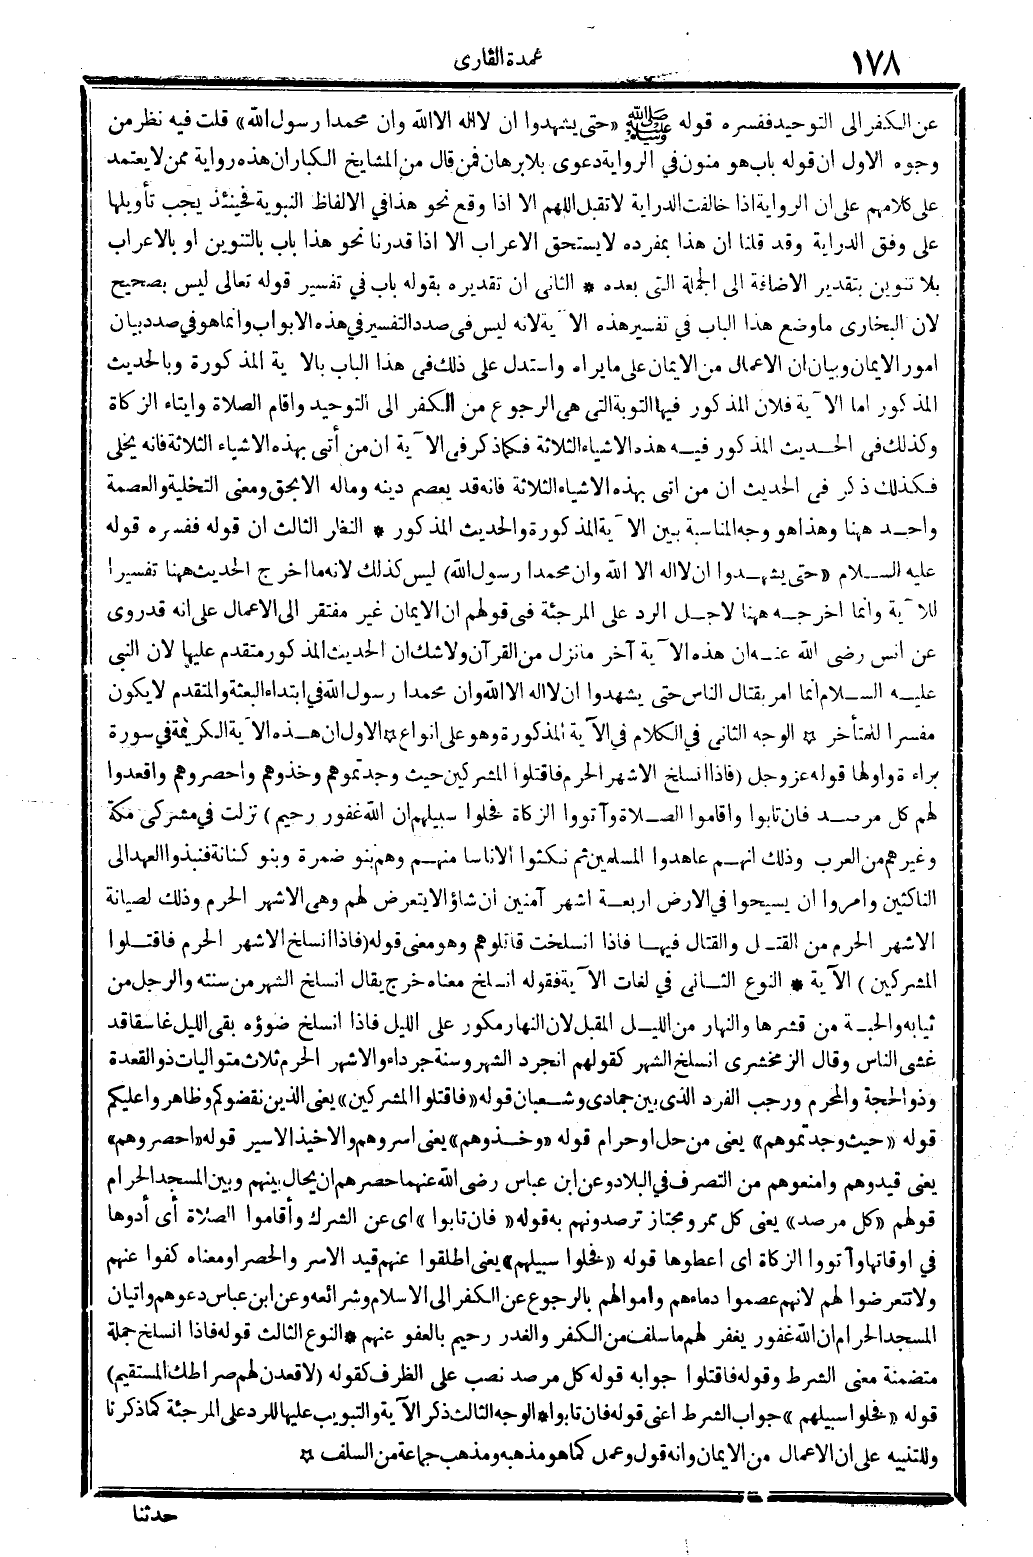 ١٧٨
عمدة القارى
عن الكفر الى التوحيد ففسره قوله ﷺ «حتى يشهدوا ان لا اله الا الله وان محمدا رسول الله» قلت فيه نظر من
وجوه الاول ان قوله باب هو منون في الرواية دعوى بلا برهان فمن قال من المشايخ الكبار ان هذه رواية ممن لا يعتمد
على كلامهم على ان الرواية اذا خالفت الدراية لا تقبل اللهم الا اذا وقع نحو هذا في الالفاظ النبوية فحينئذ يجب تأويلها
على وفق الدراية وقد قلنا ان هذا بمفرده لا يستحق الاعراب الا اذا قدرنا نحو هذا باب بالتنوين او بالاعراب
بلا تنوين بتقدير الاضافة الى الجملة التى بعده * الثانى ان تقديره بقوله باب في تفسير قوله تعالى ليس بصحيح
لان البخارى ما وضع هذا الباب في تفسير هذه الآية لانه ليس فى صدد التفسير في هذه الابواب وانما هو في صدد بيان
امور الايمان وبيان ان الاعمال من الايمان على ما يراه واستدل على ذلك فى هذا الباب بالآية المذكورة وبالحديث
المذكور اما الآية فلان المذكور فيها التوبة التى هى الرجوع من الكفر الى التوحيد واقام الصلاة وايتاء الزكاة
وكذلك فى الحديث المذكور فيه هذه الاشياء الثلاثة فكما ذكر فى الآية ان من أتى بهذه الاشياء الثلاثة فانه يخلى
فكذلك ذكر فى الحديث ان من اتى بهذه الاشياء الثلاثة فانه قد يعصم دينه وماله الا بحق ومعنى التخلية والعصمة
واحد ههنا وهذا هو وجه المناسبة بين الآية المذكورة والحديث المذكور * النظر الثالث ان قوله ففسره قوله
عليه السلام «حتى يشهدوا ان لا اله الا الله وان محمدا رسول الله) ليس كذلك لانه ما اخرج الحديث ههنا تفسيرا
للآية وانما اخرجه ههنا لاجل الرد على المرجئة فى قولهم ان الايمان غير مفتقر الى الاعمال على انه قد روى
عن انس رضى الله عنه ان هذه الآية آخر ما نزل من القرآن ولا شك ان الحديث المذكور متقدم عليها لان النبى
عليه السلام انما امر بقتال الناس حتى يشهدوا ان لا اله الا الله وان محمدا رسول الله في ابتداء البعثة والمتقدم لا يكون
مفسرا للمتأخر ☆ الوجه الثانى في الكلام في الآية المذكورة وهو على انواع ☆ الاول ان هذه الآية الكريمة في سورة
براءة واولها قوله عز وجل (فاذا انسلخ الاشهر الحرم فاقتلوا المشركين حيث وجدتموهم وخذوهم واحصروهم واقعدوا
لهم كل مرصد فان تابوا واقاموا الصلاة وآتووا الزكاة فخلوا سبيلهم ان الله غفور رحيم ) نزلت في مشركى مكة
وغيرهم من العرب وذلك انهم عاهدوا المسلمين ثم نكثوا الا ناسا منهم وهم بنو ضمرة وبنو كنانة فنبذوا العهد الى
الناكثين وامروا ان يسيحوا في الارض اربعة اشهر آمنين ان شاؤا لا يتعرض لهم وهى الاشهر الحرم وذلك لصيانة
الاشهر الحرم من القتل والقتال فيها فاذا انسلخت قاتلوهم وهو معنى قوله (فاذا انسلخ الاشهر الحرم فاقتلوا
المشركين ) الآية * النوع الثانى في لغات الآية فقوله انسلخ معناه خرج يقال انسلخ الشهر من سنته والرجل من
ثيابه والحية من قشرها والنهار من الليل المقبل لان النهار مكور على الليل فاذا انسلخ ضوؤه بقى الليل غاسقا قد
غشى الناس وقال الزمخشرى انسلخ الشهر كقولهم انجرد الشهر وسنة جرداء والاشهر الحرم ثلاث متواليات ذو القعدة
وذو الحجة والمحرم ورجب الفرد الذى بين جمادى وشعبان قوله «فاقتلوا المشركين» يعنى الذين نقضوكم وظاهروا عليكم
قوله «حيث وجدتموهم» يعنى من حل او حرام قوله «وخذوهم» يعنى اسروهم والاخيذ الاسير قوله «احصروهم»
يعنى قيدوهم وامنعوهم من التصرف في البلاد وعن ابن عباس رضى الله عنهما حصرهم ان يحال بينهم وبين المسجد الحرام
قولهم «كل مرصد» يعنى كل ممر ومجتاز ترصدونهم به قوله «فان تابوا» اى عن الشرك وأقاموا الصلاة أى أدوها
في اوقاتها وآتووا الزكاة اى اعطوها قوله «فخلوا سبيلهم» يعنى اطلقوا عنهم قيد الاسر والحصر او معناه كفوا عنهم
ولا تتعرضوا لهم لانهم عصموا دماءهم واموالهم بالرجوع عن الكفر الى الاسلام وشرائعه وعن ابن عباس دعوهم واتيان
المسجد الحرام ان الله غفور يغفر لهم ما سلف من الكفر والغدر رحيم بالعفو عنهم * النوع الثالث قوله فاذا انسلخ جملة
متضمنة معنى الشرط وقوله فاقتلوا جوابه قوله كل مرصد نصب على الظرف كقوله (لاقعدن لهم صراطك المستقيم)
قوله «فخلوا سبيلهم» جواب الشرط اعنى قوله فان تابوا * الوجه الثالث ذكر الآية والتبويب عليها للرد على المرجئة كما ذكرنا
وللتنبيه على ان الاعمال من الايمان وانه قول وعمل كما هو مذهبه ومذهب جماعة من السلف ☆
حدثنا